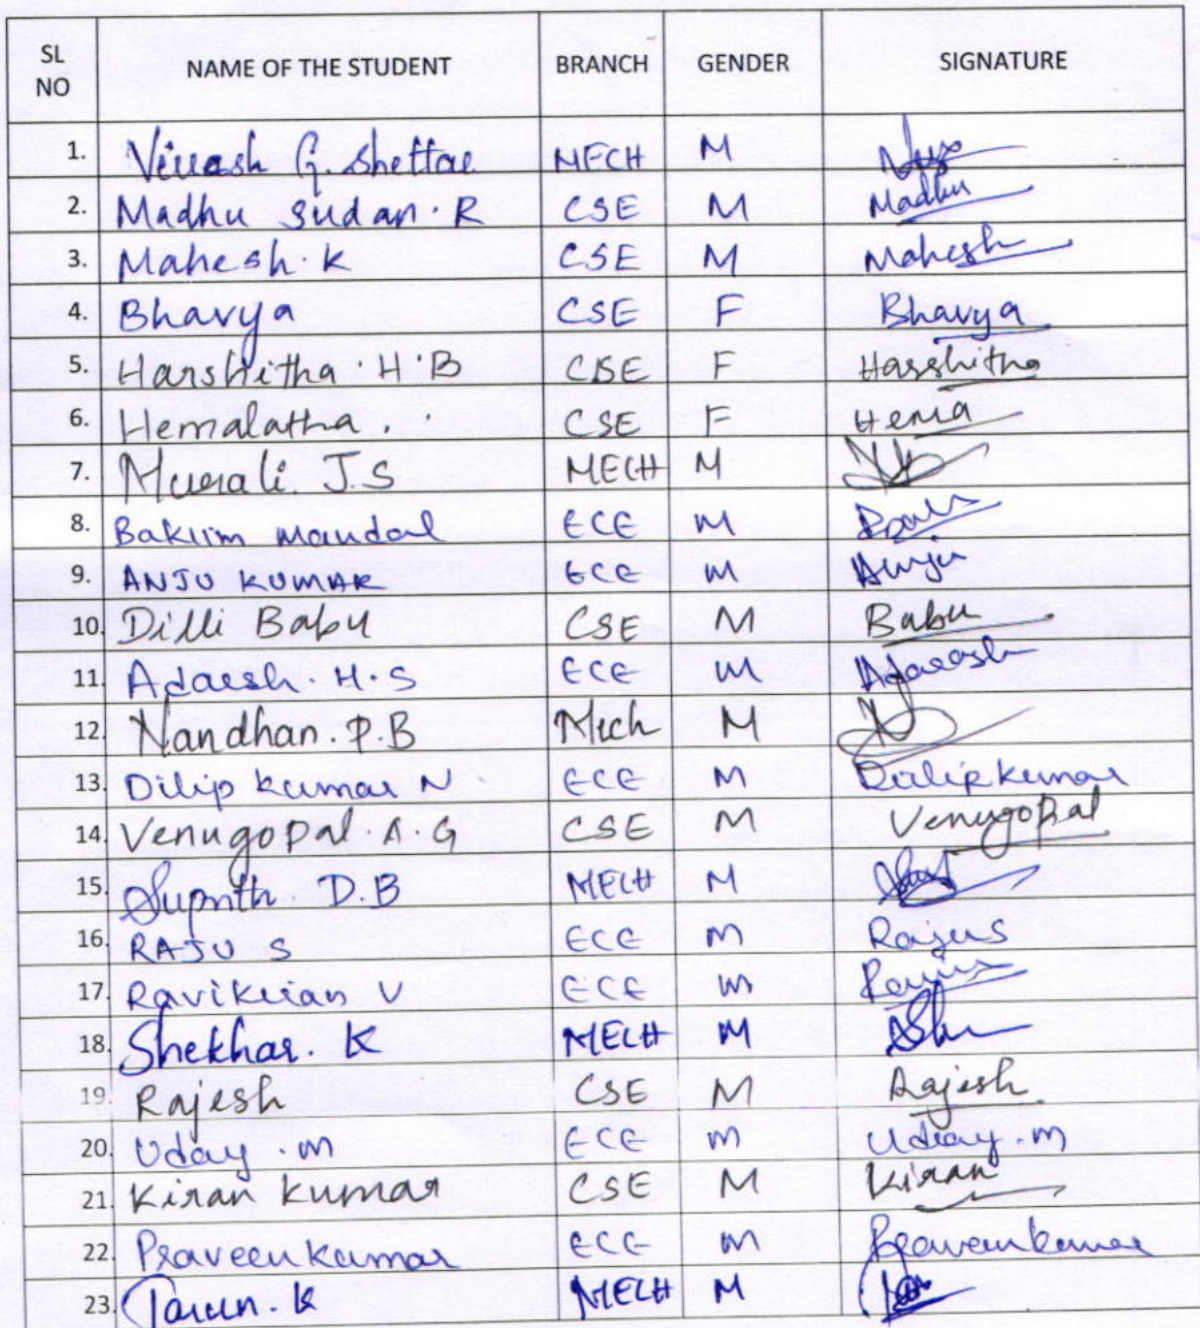 SL NO NAME OF THE STUDENT BRANCH GENDER SIGNATURE
1. G. Shettar MECH M
2. Madhu Sudan. R CSE M Madhu
3. Mahesh. K CSE M Mahesh
4. Bhavya CSE F Bhavya
5. Harshitha. H. B CSE F Harshitha
6. Hemalatha. CSE F Hema
7. Murali. J.S MECH M
8. Mandal ECE M
9. ANJU KUMAR ECE M Anju
10. Dilli Babu CSE M Babu
11. Adarsh. H.S ECE M Adarash
12. Nandhan. P.B Mech M
13. Dilip kumar N ECE M Dilip kumar
14. Venugopal. A. G CSE M Venugopal
15. D.B MECH M
16. RAJU S ECE M Raju S
17. Ravikiran V ECE M
18. Shekhar. K MECH M
19. Rajesh CSE M Rajesh
20. Uday. m ECE m Uday. m
21. Kiran kumar CSE M Kiran
22. Praveen kumar ECE m Praveen kumar
23. Tarun. K MECH M